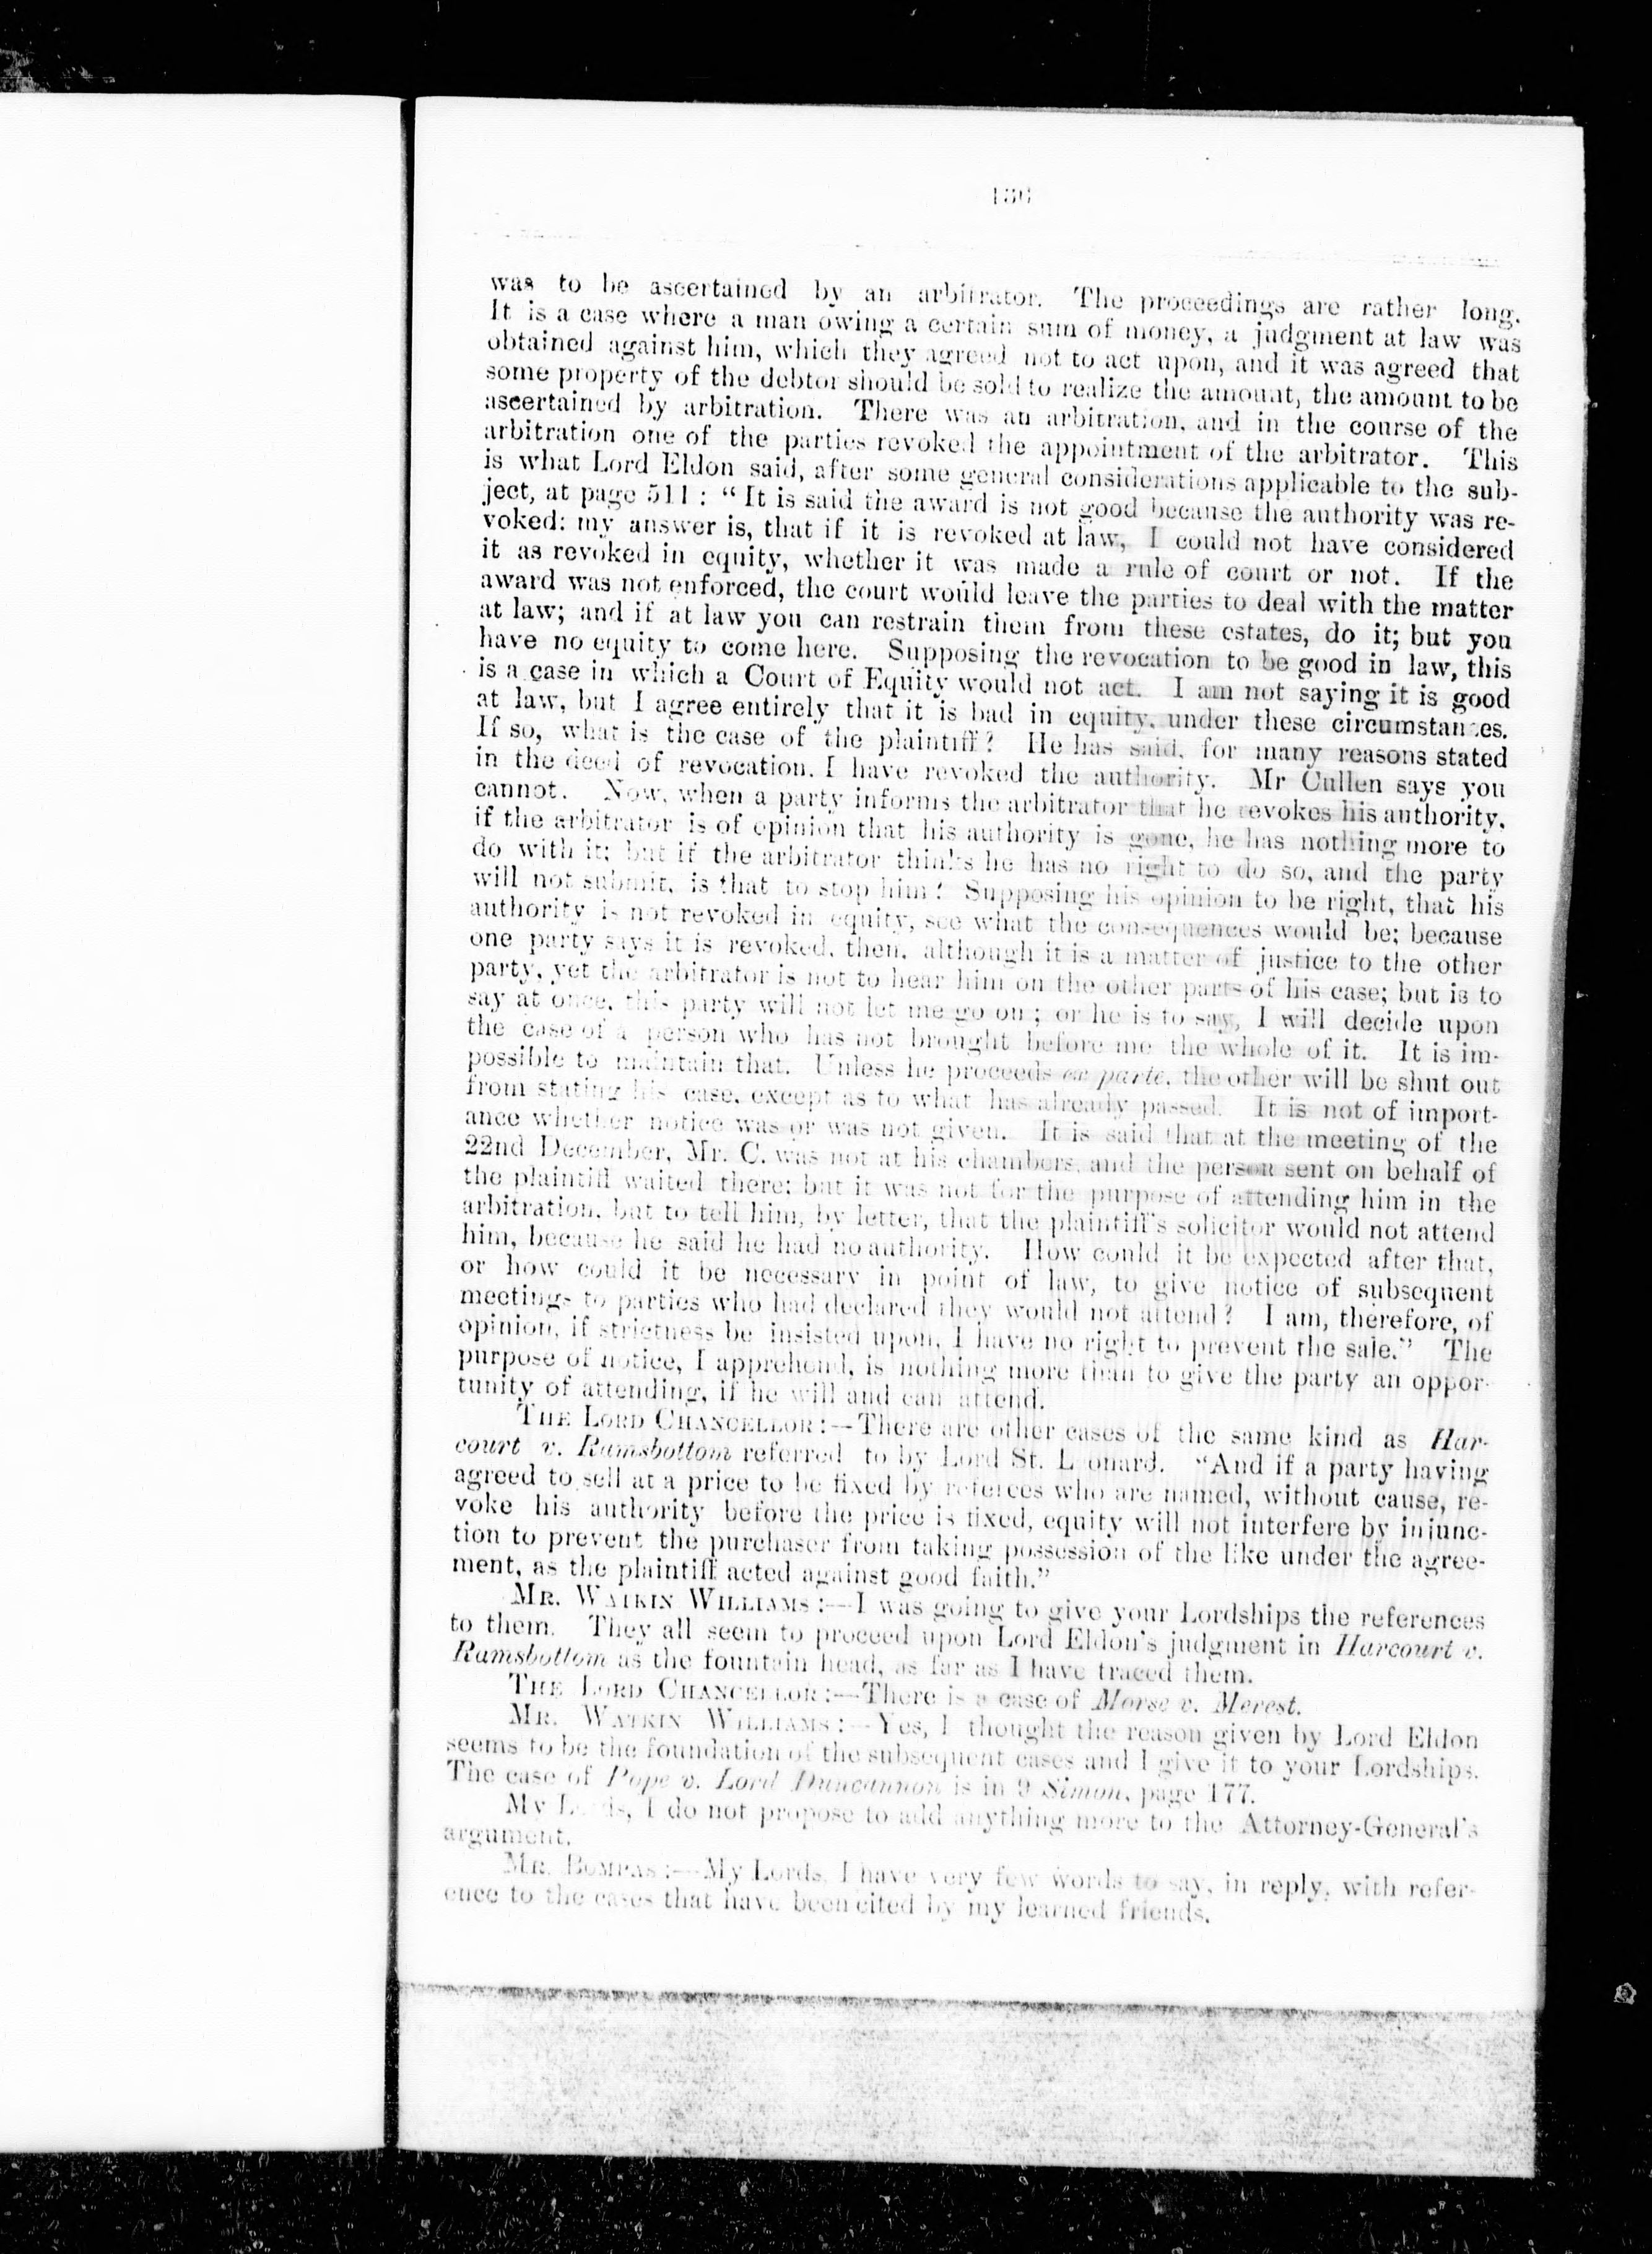 136
was to be ascertained by an arbitrator. The proceedings are rather long.
It is a case where a man owing a certain sum of money, a judgment at law was
obtained against him, which they agreed not to act upon, and it was agreed that
some property of the debtor should be sold to realize the amount, the amount to be
ascertained by arbitration. There was an arbitration, and in the course of the
arbitration one of the parties revoked the appointment of the arbitrator. This
is what Lord Eldon said, after some general considerations applicable to the sub-
ject, at page 511 : "It is said the award is not good because the authority was re-
voked: my answer is, that if it is revoked at law, I could not have considered
it as revoked in equity, whether it was made a rule of court or not. If the
award was not enforced, the court would leave the parties to deal with the matter
at law; and if at law you can restrain them from these estates, do it; but you
have no equity to come here. Supposing the revocation to be good in law, this
is a case in which a Court of Equity would not act. I am not saying it is good
at law, but I agree entirely that it is bad in equity, under these circumstances.
If so, what is the case of the plaintiff? He has said, for many reasons stated
in the deed of revocation, I have revoked the authority. Mr Cullen says you
cannot. Now, when a party informs the arbitrator that he revokes his authority,
if the arbitrator is of opinion that his authority is gone, he has nothing more to
do with it; but if the arbitrator thinks he has no right to do so, and the party
will not submit, is that to stop him? Supposing his opinion to be right, that his
authority is not revoked in equity, see what the consequences would be; because
one party says it is revoked, then, although it is a matter of justice to the other
party, yet the arbitrator is not to hear him on the other parts of his case; but is to
say at once, this party will not let me go on; or he is to say, I will decide upon
the case of a person who has not brought before me the whole of it. It is im-
possible to maintain that. Unless he proceeds ex parte, the other will be shut out
from stating his case, except as to what has already passed. It is not of import-
ance whether notice was or was not given. It is said that at the meeting of the
22nd December, Mr. C. was not at his chambers, and the person sent on behalf of
the plaintiff waited there; but it was not for the purpose of attending him in the
arbitration, but to tell him, by letter, that the plaintiff's solicitor would not attend
him, because he said he had no authority. How could it be expected after that,
or how could it be necessary in point of law, to give notice of subsequent
meetings to parties who had declared they would not attend? I am, therefore, of
opinion, if strictness be insisted upon, I have no right to prevent the sale." The
purpose of notice, I apprehend, is nothing more than to give the party an oppor-
tunity of attending, if he will and can attend.
THE LORD CHANCELLOR:—There are other cases of the same kind as Har-
court v. Ramsbottom referred to by Lord St. L onard. "And if a party having
agreed to sell at a price to be fixed by referees who are named, without cause, re-
voke his authority before the price is fixed, equity will not interfere by injunc-
tion to prevent the purchaser from taking possession of the like under the agree-
ment, as the plaintiff acted against good faith."
MR. WATKIN WILLIAMS:—I was going to give your Lordships the references
to them. They all seem to proceed upon Lord Eldon's judgment in Harcourt v.
Ramsbottom as the fountain head, as far as I have traced them.
THE LORD CHANCELLOR:—There is a case of Morse v. Merest.
MR. WATKIN WILLIAMS:—Yes, I thought the reason given by Lord Eldon
seems to be the foundation of the subsequent cases and I give it to your Lordships.
The case of Pope v. Lord Duncannon is in 9 Simon, page 177.
My Lords, I do not propose to add anything more to the Attorney-General's
argument.
MR. BOMPAS:—My Lords, I have very few words to say, in reply, with refer-
ence to the cases that have been cited by my learned friends.